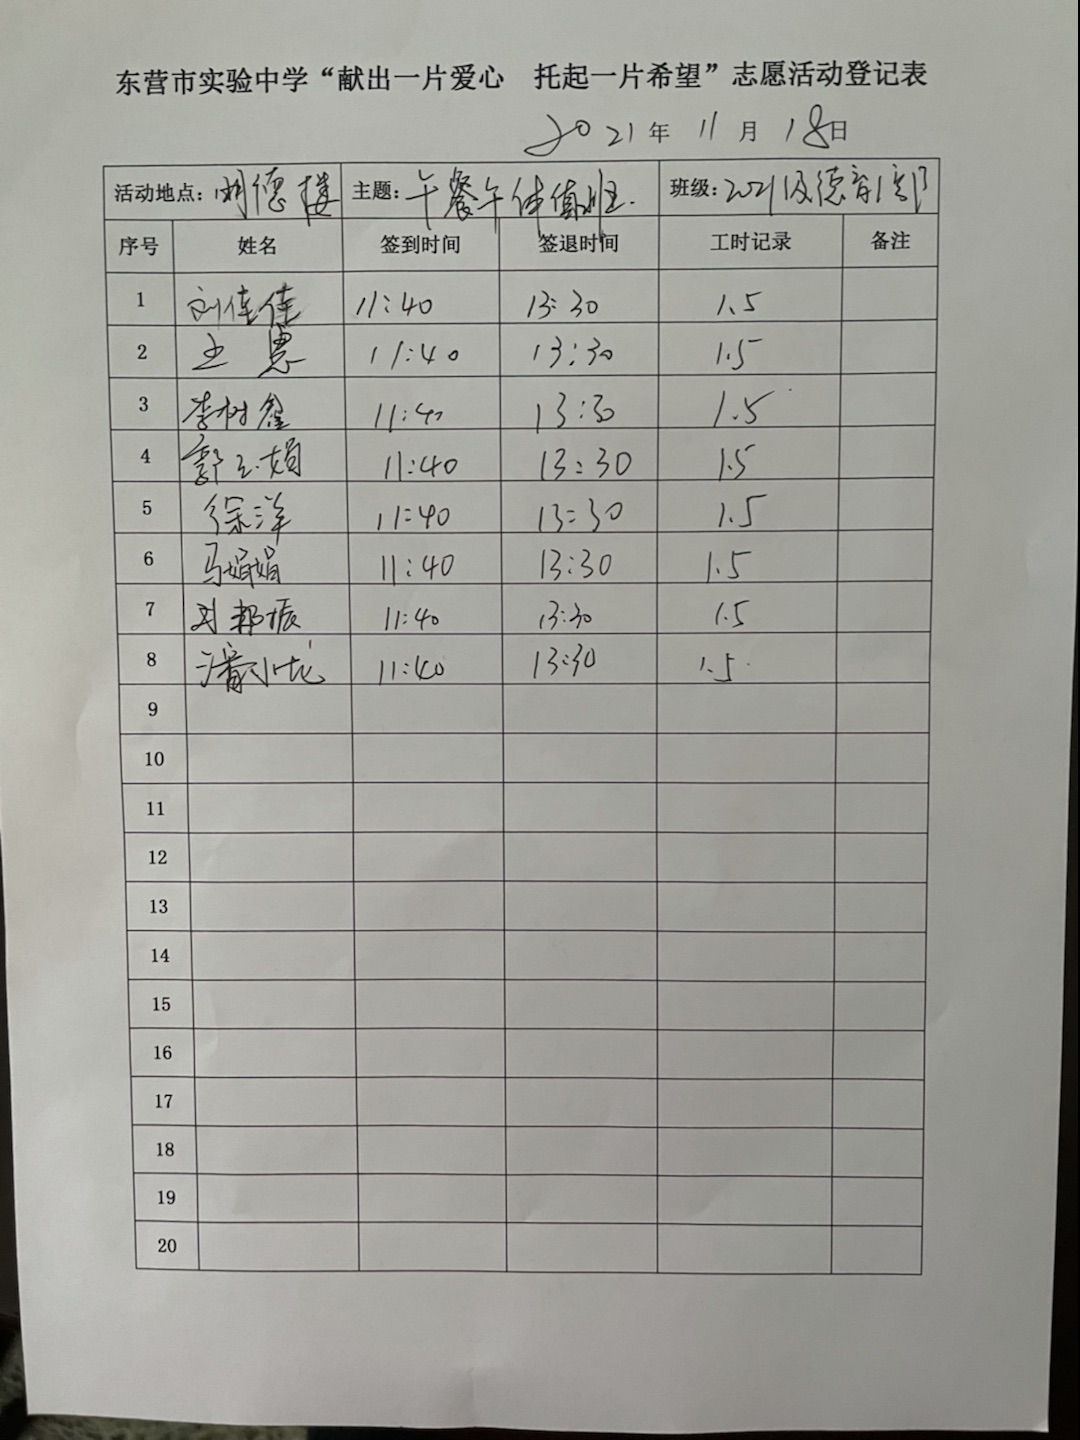 东营市实验中学“献出一片爱心 托起一片希望”志愿活动登记表
2021年 11月 18日
活动地点：明德楼 主题：午餐午休值班. 班级：2021级德育1部
序号 姓名 签到时间 签退时间 工时记录 备注
1 刘佳佳 11:40 13:30 1.5
2 王 恩 11:40 13:30 1.5
3 李树鑫 11:40 13:30 1.5
4 郭玉娟 11:40 13:30 1.5
5 徐洋 11:40 13:30 1.5
6 马娟娟 11:40 13:30 1.5
7 刘邦振 11:40 13:30 1.5
8 潘小龙 11:40 13:30 1.5
9
10
11
12
13
14
15
16
17
18
19
20